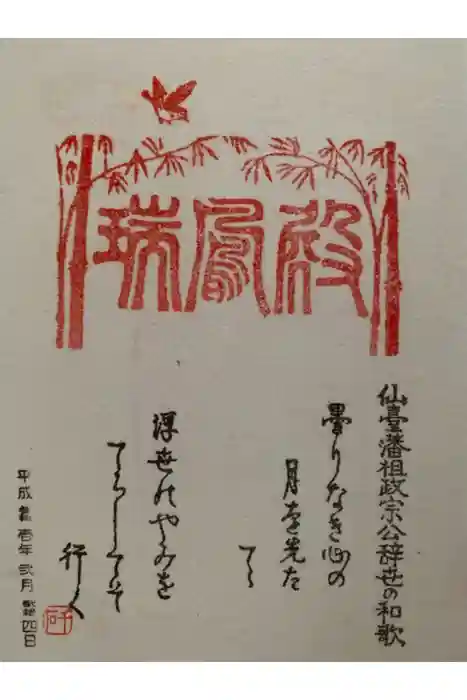 瑞鳳殿
仙臺藩祖政宗公辞世の和歌
曇りなき心の
月を先た
てゝ
浮世のやみを
てらしてそ
行く
平成 壱年弐月 四日